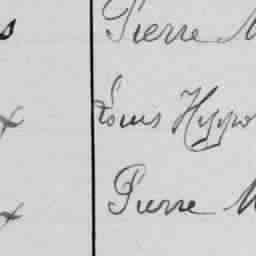 s Pierre M
x Louis Hyppo
x Pierre M